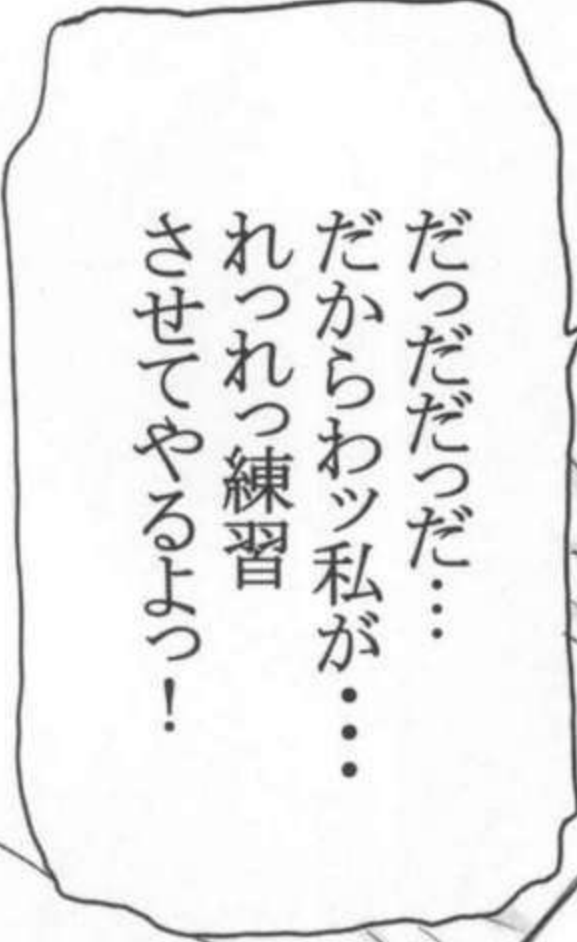 だっだだっだ…
だからわッ私が…
れっれっ練習
させてやるよっ！